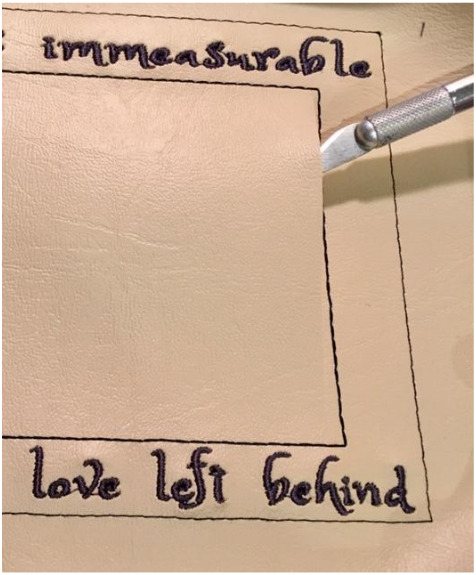 immeasurable
love left behind